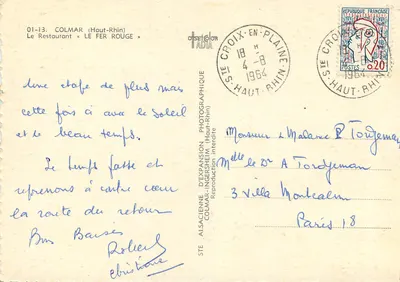 01-13. COLMAR (Haut-Rhin)
Le Restaurant "LE FER ROUGE"
Une étape de plus mais
cette fois ci avec le soleil
et le beau temps.
Le temps passe et
reprenons à contre cœur
la route du retour
Bons Baisers
Robert
Christiane
STE ALSACIENNE D'EXPANSION PHOTOGRAPHIQUE
COLMAR-INGERSHEIM (Haut-Rhin)
Reproduction interdite
STE CROIX-EN-PLAINE
18 H
4-8
1964
HAUT-RHIN
STE CROIX-EN-PLAINE
18 H
4-8
1964
S-HAUT-RHIN
POSTES 0,20
Monsieur & Madame P Tordjeman
Melle le Dr A Tordjeman
3 Villa Montcalm
Paris 18